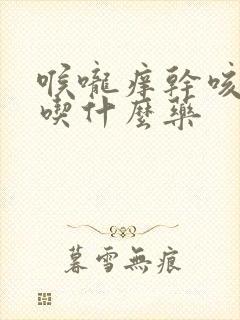 喉嚨痒幹咳
喫什麼藥
暮雪無痕